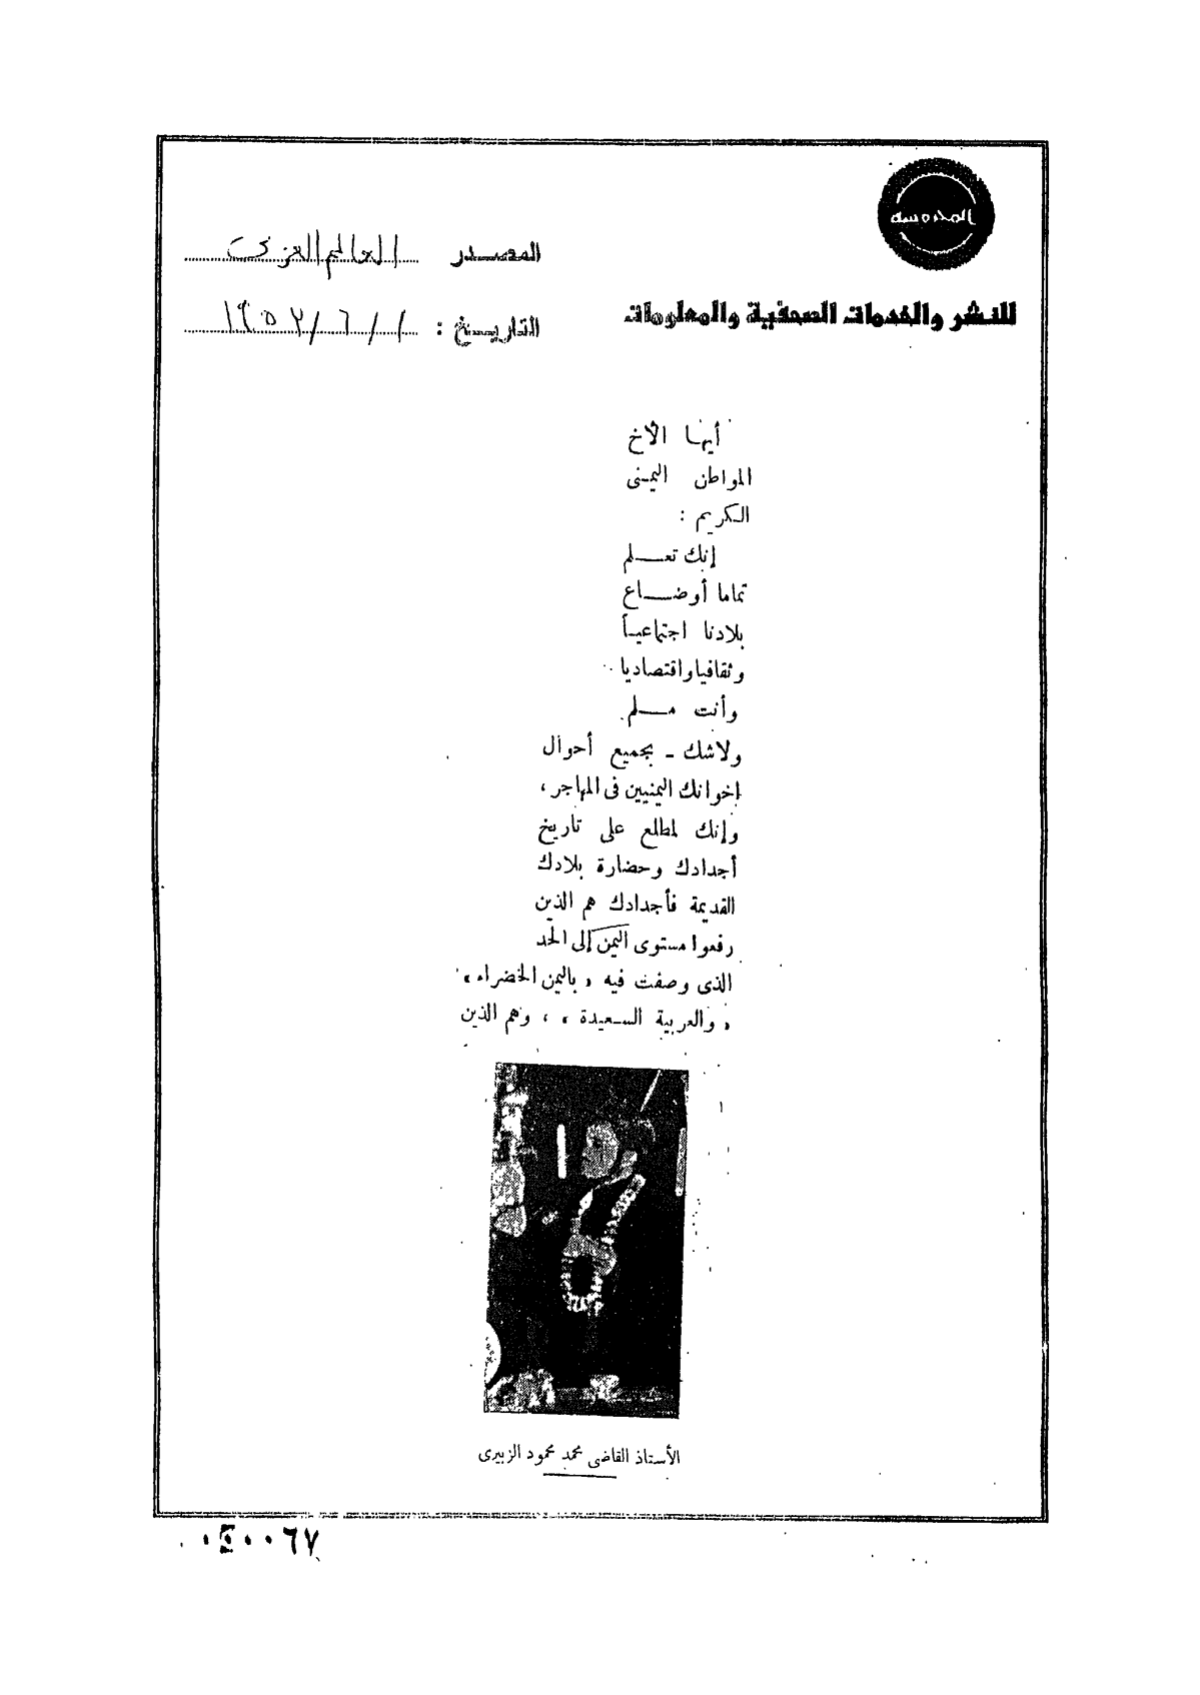 المحروسة
للنشر والخدمات الصحفية والمعلومات
المصدر العالم العربي
التاريخ : ١ / ٦ / ١٩٥٢
أيها الأخ
المواطن اليمنى
الكريم :
إنك تعلم
تماما أوضاع
بلادنا اجتماعياً
وثقافيا واقتصاديا
وأنت ملم
ولاشك - بجميع أحوال
إخوانك اليمنيين فى المهاجر ،
وإنك لمطلع على تاريخ
أجدادك وحضارة بلادك
القديمة فأجدادك هم الذين
رفعوا مستوى اليمن إلى الحد
الذى وصفت فيه « باليمن الخضراء »
« والعربية السعيدة » ، وهم الذين
الأستاذ القاضى محمد محمود الزبيرى